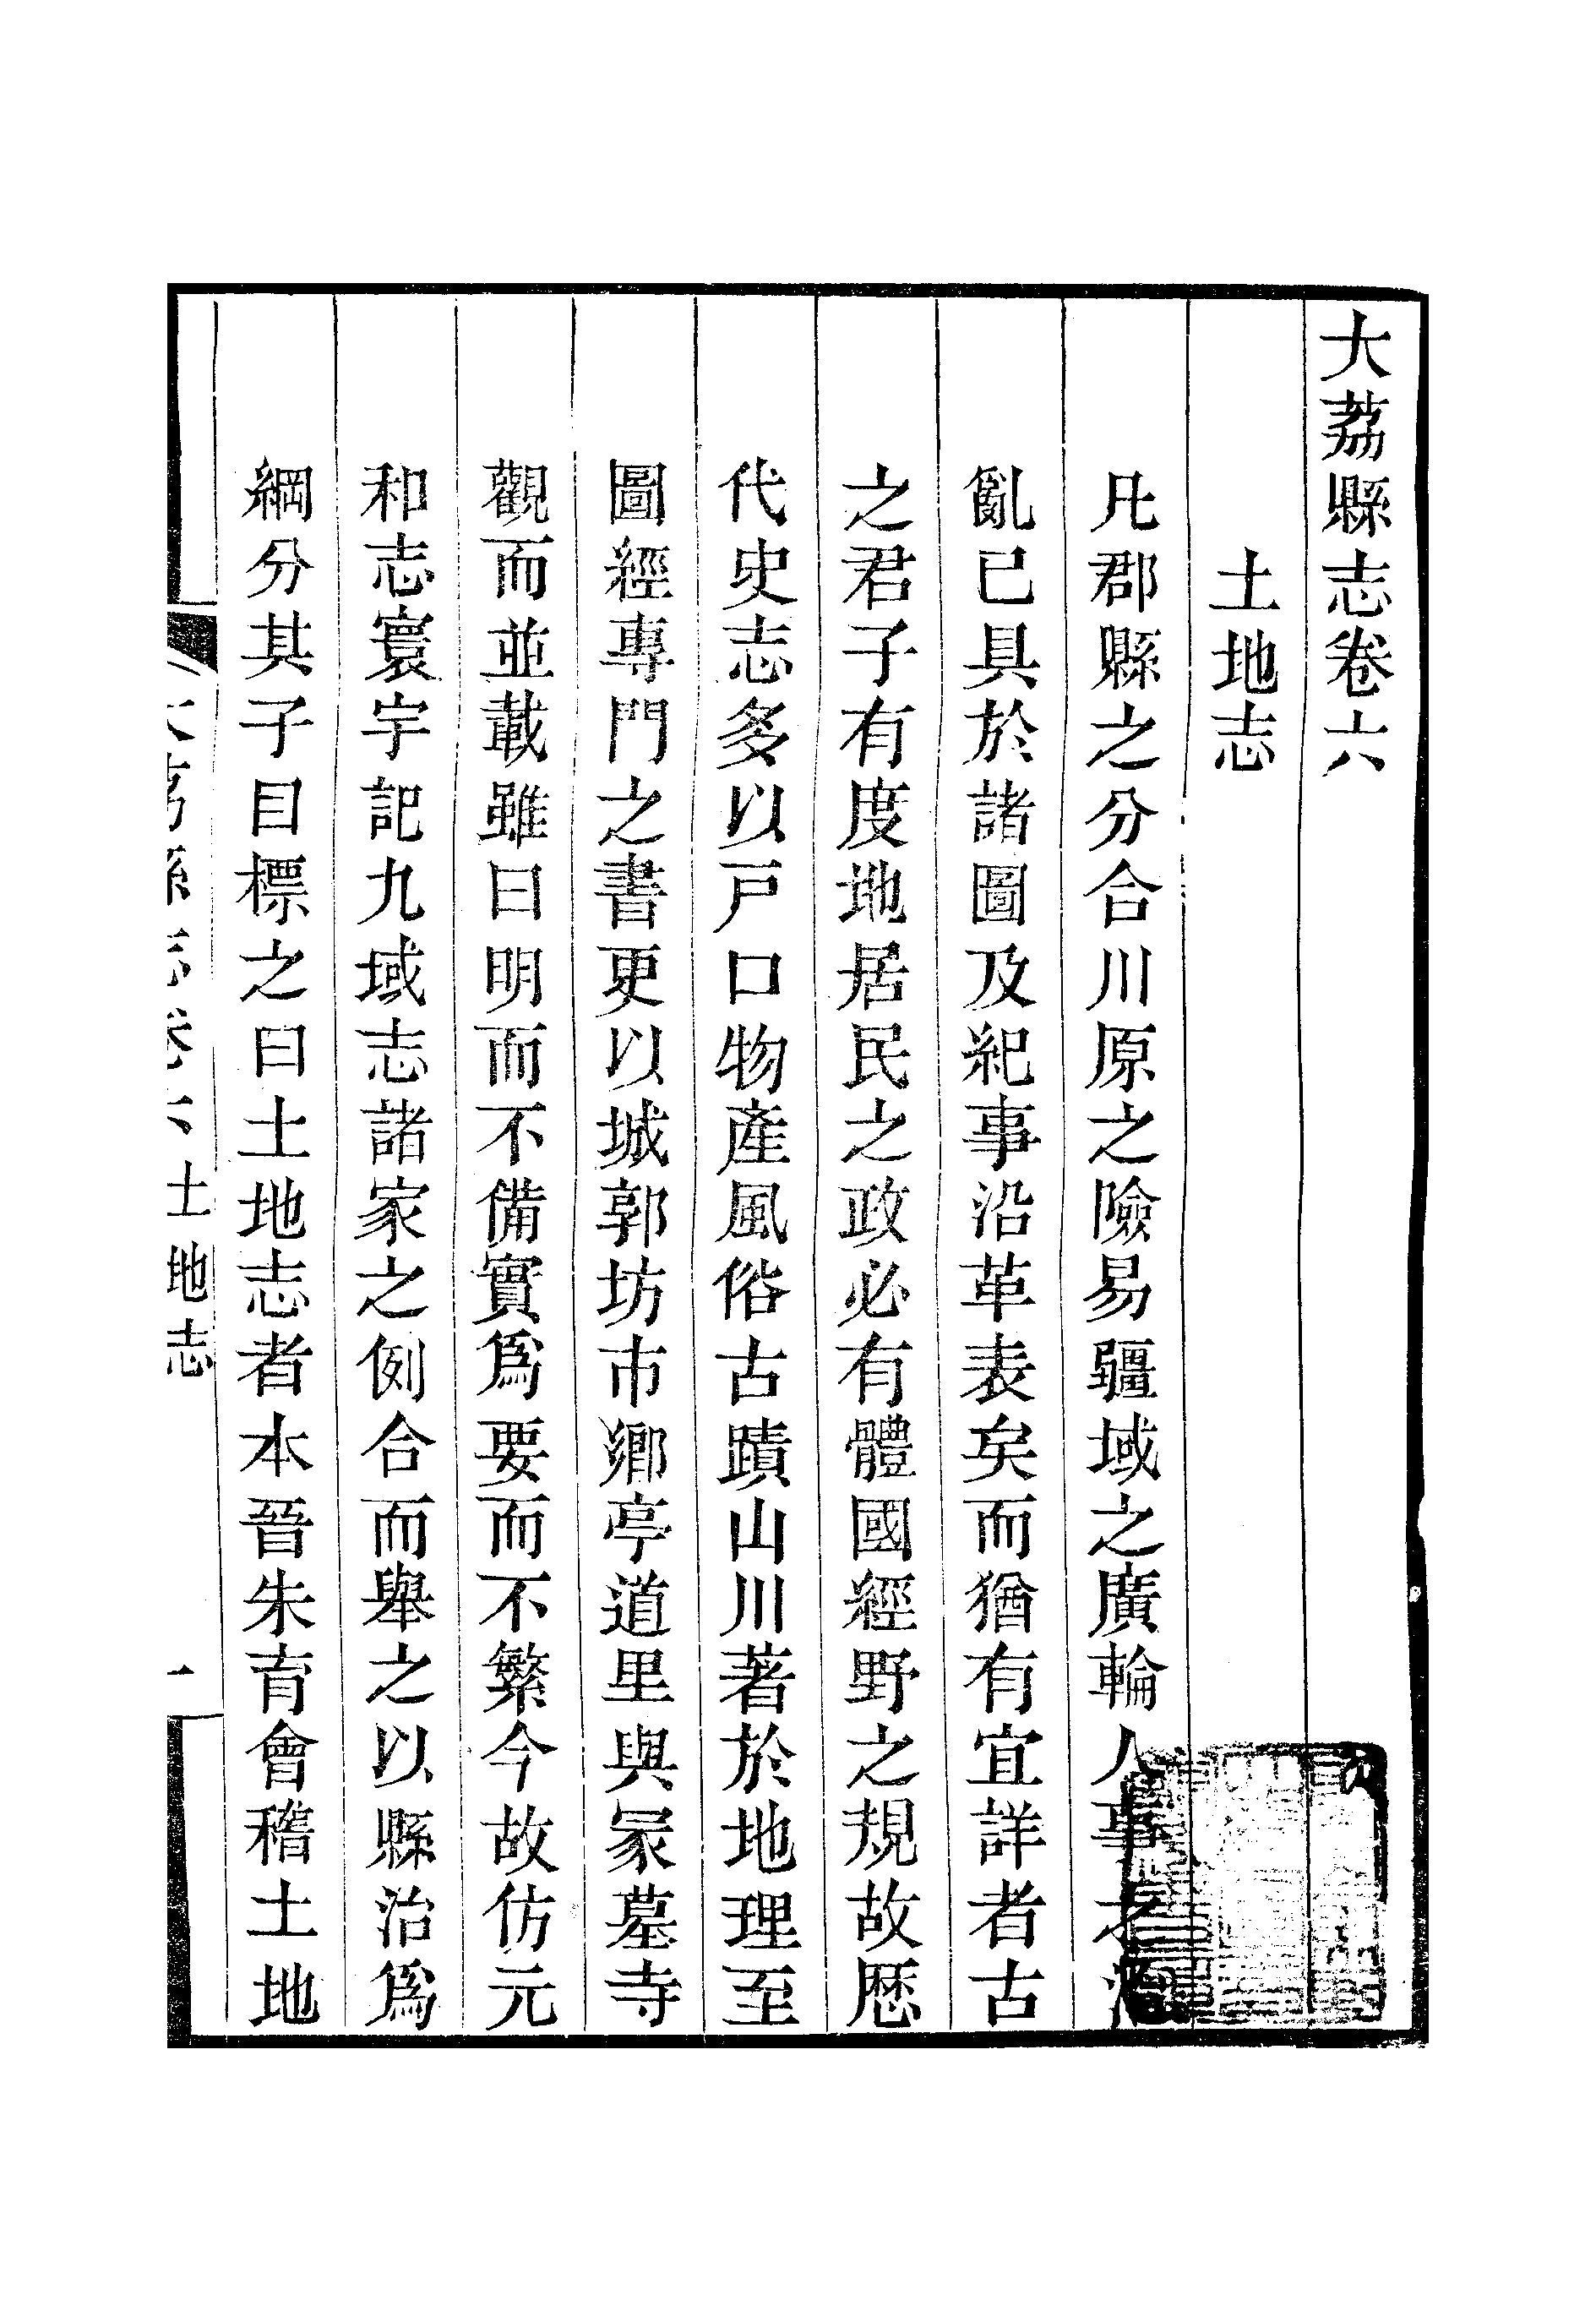 大荔縣志卷六
土地志
凡郡縣之分合川原之險易疆域之廣輪人事之治
亂已具於諸圖及紀事沿革表矣而猶有宜詳者古
之君子有度地居民之政必有體國經野之規故歷
代史志多以戸口物產風俗古蹟山川著於地理至
圖經專門之書更以城郭坊市鄉亭道里與冢墓寺
觀而並載雖曰明而不備實爲要而不繁今故仿元
和志寰宇記九域志諸家之例合而舉之以縣治爲
綱分其子目標之曰土地志者本晉朱育會稽土地
大荔縣志卷六 土地志 一